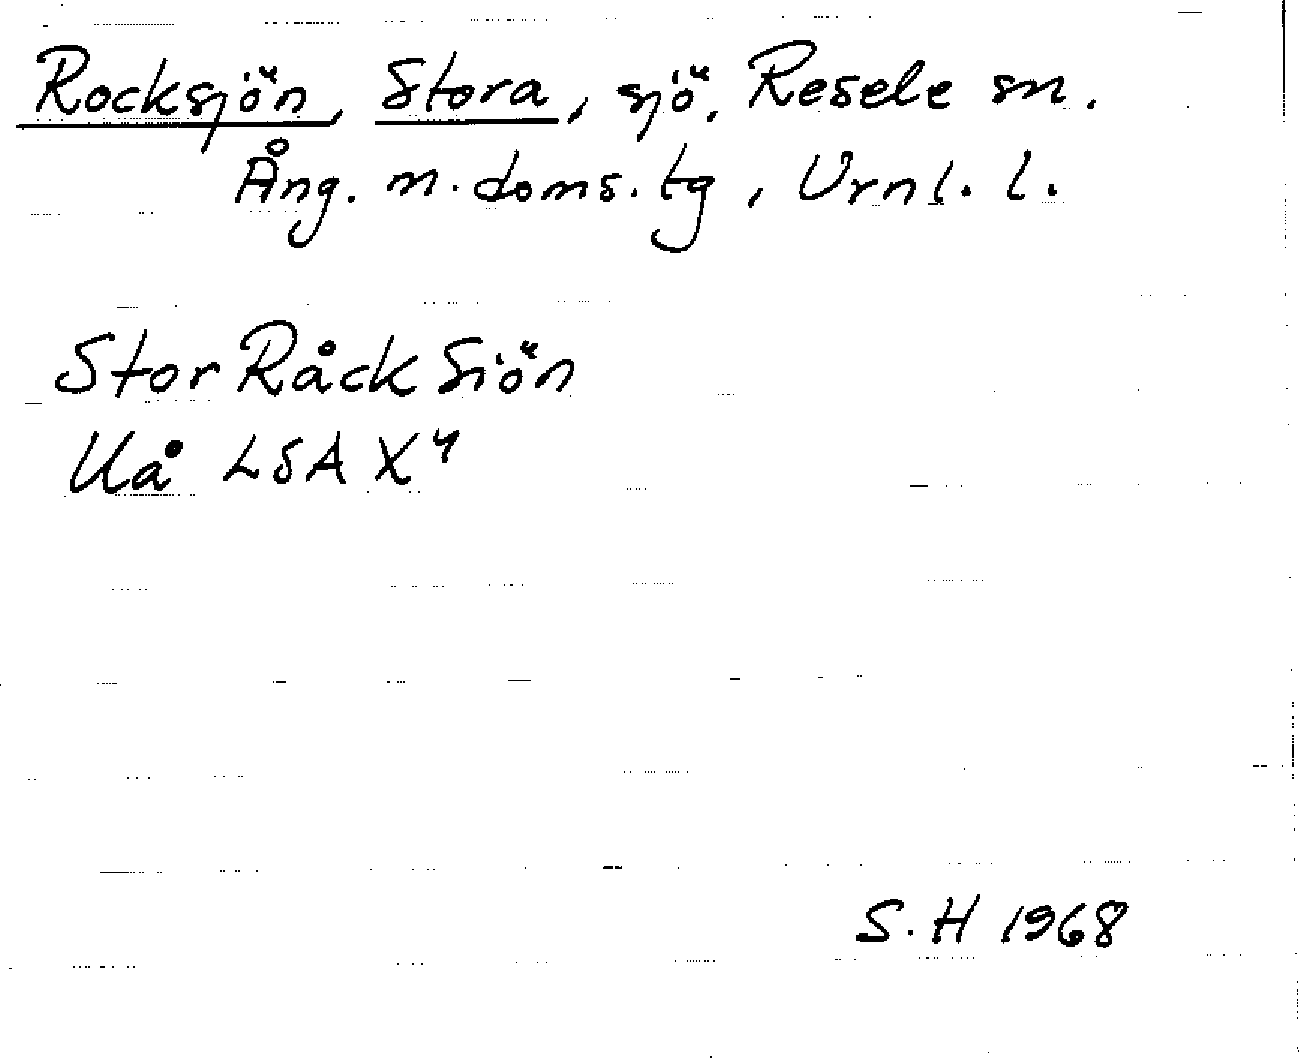 Rocksjön, Stora, sjö, Resele sn.
Ång. m. doms. tg, Vrnl. l.
Stor Råck Siön
Uå LSA X4
S. H 1968